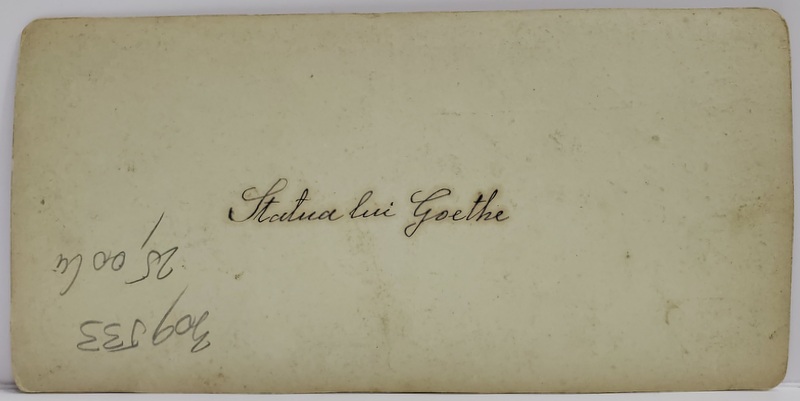 Statua lui Goethe
25,00 lei
309533